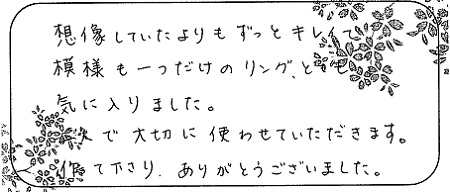 想像していたよりもずっとキレイで
模様も一つだけのリング、とても
気に入りました。
次で大切に使わせていただきます。
作て下さり、ありがとうございました。